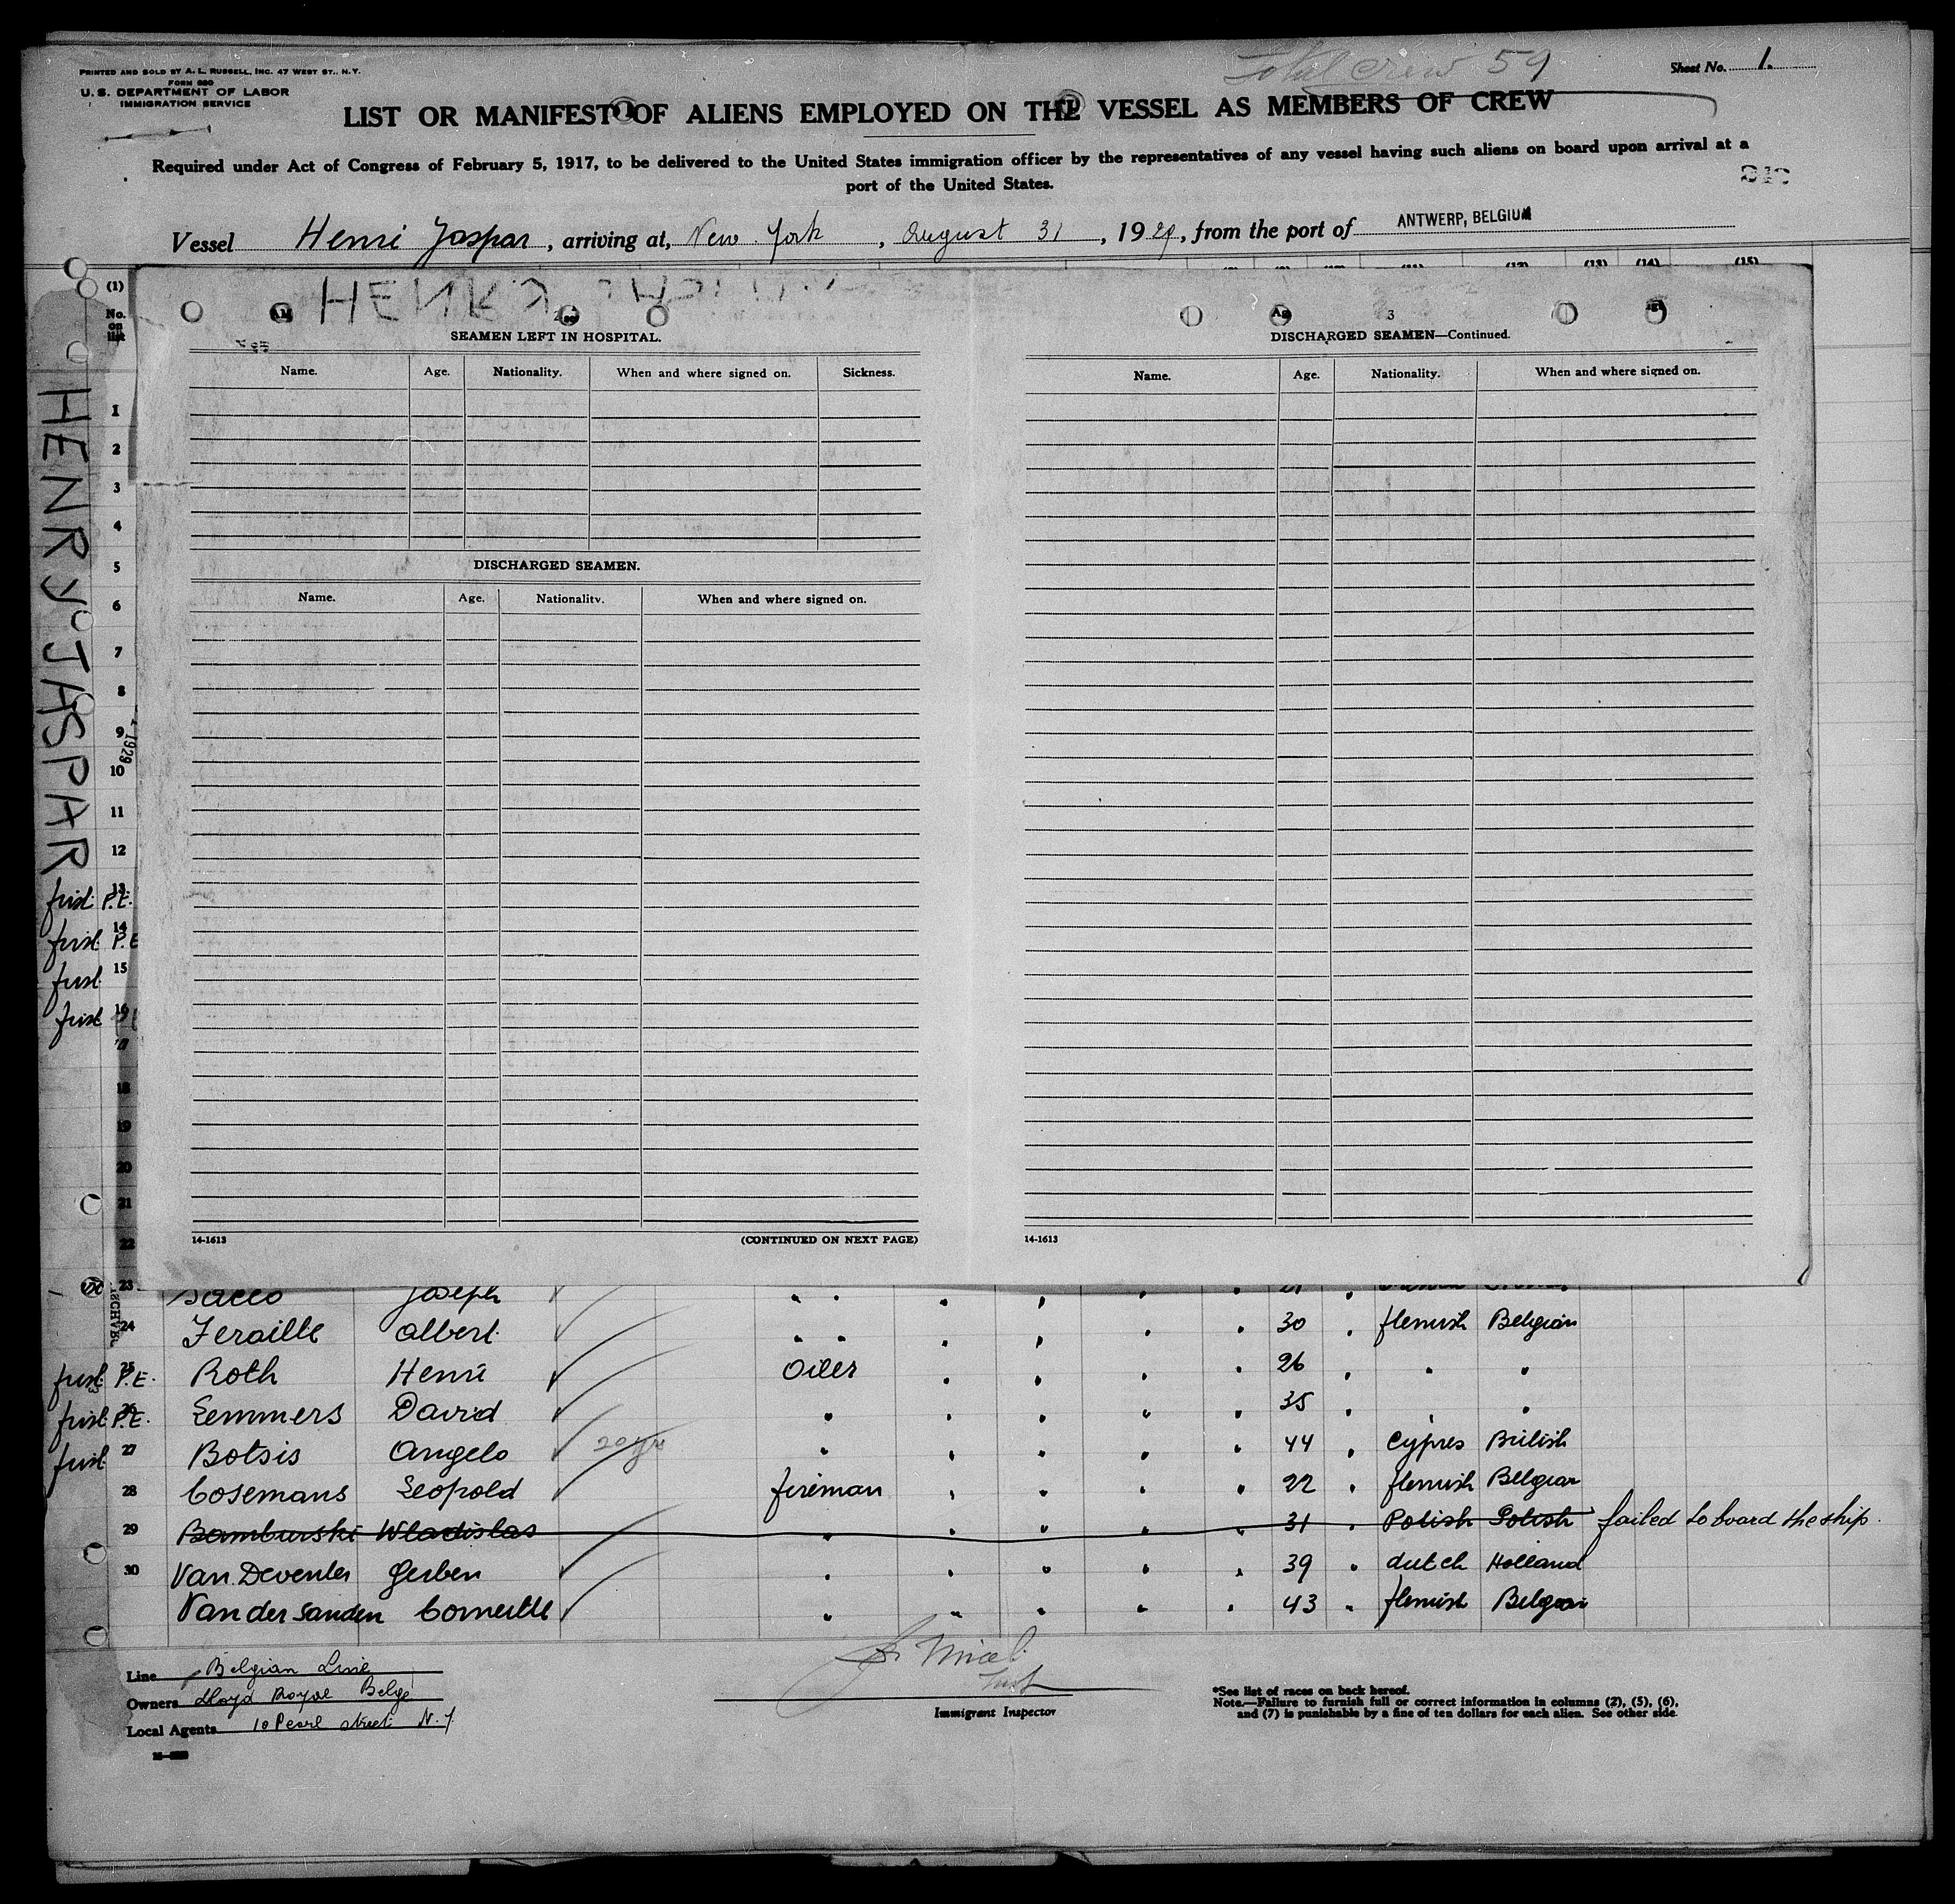 PRINTED AND SOLD BY A. L. RUSSELL, INC. 47 WEST ST., N.Y.
FORM 680
U. S. DEPARTMENT OF LABOR
IMMIGRATION SERVICE
Total Crew 59
Sheet No. 1.
LIST OR MANIFEST OF ALIENS EMPLOYED ON THE VESSEL AS MEMBERS OF CREW
Required under Act of Congress of February 5, 1917, to be delivered to the United States immigration officer by the representatives of any vessel having such aliens on board upon arrival at a
port of the United States.
Vessel Henri Jaspar, arriving at, New York, August 31, 1929, from the port of ANTWERP, BELGIUM
(1) (13) (14) (15)
No. on list
HENRY JASPAR
HENRY
2
SEAMEN LEFT IN HOSPITAL.
Name. Age. Nationality. When and where signed on. Sickness.
DISCHARGED SEAMEN.
Name. Age. Nationality. When and where signed on.
14-1613 (CONTINUED ON NEXT PAGE)
3
DISCHARGED SEAMEN—Continued.
Name. Age. Nationality. When and where signed on.
14-1613
1
2
3
4
5
6
7
8
9
1929
10
11
12
first P.E. 13
first P.E 14
first 15
first 16
17
18
19
20
21
22
23 Sacco Joseph " " " " " " 21 "
24 Feraille Albert " " " " " " 30 " flemish Belgian
first P.E. 25 Roth Henri Oiler " " " 26 " " "
first P.E. 26 Lemmers David " " " " " 35 " " "
first 27 Botsis Angelo 20 yrs " " " " " 44 " Cypres British
28 Cosemans Leopold fireman " " " " 22 " flemish Belgian
29 Bamburski Wladislas " " " " " 31 " Polish Polish failed to board the ship.
30 Van Deventer Gerben " " " " " 39 " dutch Holland
Van der Sanden Corneille " " " " " 43 " flemish Belgian
Line Belgian Line
Owners Lloyd Royal Belge
Local Agents 10 Pearl street N.Y
Immigrant Inspector
*See list of races on back hereof.
Note.—Failure to furnish full or correct information in columns (2), (5), (6),
and (7) is punishable by a fine of ten dollars for each alien. See other side.